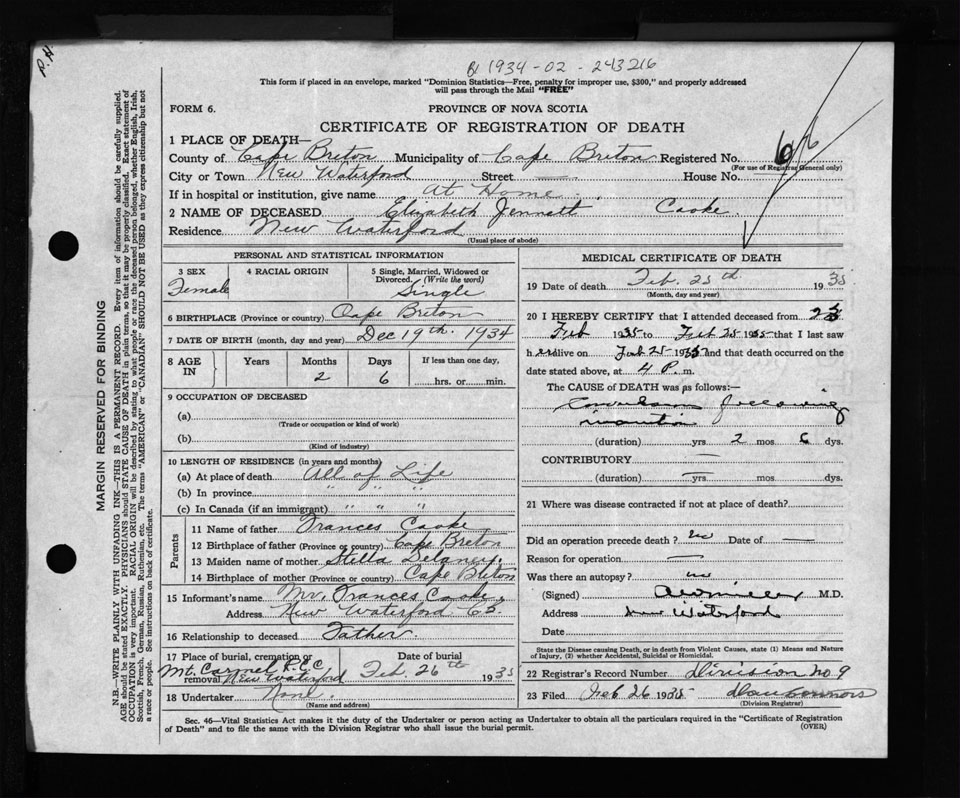 1934-02-243216
This form if placed in an envelope, marked "Dominion Statistics—Free, penalty for improper use, $300," and properly addressed
will pass through the Mail "FREE"
FORM 6. PROVINCE OF NOVA SCOTIA
CERTIFICATE OF REGISTRATION OF DEATH
1 PLACE OF DEATH—
County of Cape Breton Municipality of Cape Breton Registered No. 66
(For use of Registrar General only)
City or Town New Waterford Street — House No.
If in hospital or institution, give name at Home
2 NAME OF DECEASED Elizabeth Jennett Cooke
Residence New Waterford
(Usual place of abode)
PERSONAL AND STATISTICAL INFORMATION
3 SEX Female
4 RACIAL ORIGIN
5 Single, Married, Widowed or
Divorced. (Write the word)
Single
6 BIRTHPLACE (Province or country) Cape Breton
7 DATE OF BIRTH (month, day and year) Dec 19th. 1934
8 AGE IN Years Months 2 Days 6 If less than one day, hrs. or min.
9 OCCUPATION OF DECEASED
(a)
(Trade or occupation or kind of work)
(b)
(Kind of industry)
10 LENGTH OF RESIDENCE (in years and months)
(a) At place of death all of Life
(b) In province " " "
(c) In Canada (if an immigrant) " " "
Parents
11 Name of father Frances Cooke
12 Birthplace of father (Province or country) Cape Breton
13 Maiden name of mother Stella Delaney
14 Birthplace of mother (Province or country) Cape Breton
15 Informant's name Mr. Frances Cooke
Address New Waterford CB.
16 Relationship to deceased Father
17 Place of burial, cremation or
removal Mt. Carmel R.C.C New Waterford
Date of burial
Feb. 26th 1935
18 Undertaker None.
(Name and address)
MEDICAL CERTIFICATE OF DEATH
19 Date of death Feb. 25th 1935
(Month, day and year)
20 I HEREBY CERTIFY that I attended deceased from
Feb 1935 to Feb 25 1935 that I last saw
her alive on Feb 25 1935 and that death occurred on the
date stated above, at 4 P. m.
The CAUSE of DEATH was as follows:—
following
(duration) yrs. 2 mos. 6 dys.
CONTRIBUTORY —
(duration) yrs. — mos. dys.
21 Where was disease contracted if not at place of death?
Did an operation precede death? no Date of —
Reason for operation —
Was there an autopsy? no
(Signed) M.D.
Address New Waterford
Date
State the Disease causing Death, or in death from Violent Causes, state (1) Means and Nature
of Injury, (2) whether Accidental, Suicidal or Homicidal.
22 Registrar's Record Number division No 9
23 Filed Feb 26 1935 Dan Connors
(Division Registrar)
Sec. 46—Vital Statistics Act makes it the duty of the Undertaker or person acting as Undertaker to obtain all the particulars required in the "Certificate of Registration
of Death" and to file the same with the Division Registrar who shall issue the burial permit. (OVER)
MARGIN RESERVED FOR BINDING
N.B.—WRITE PLAINLY WITH UNFADING INK—THIS IS A PERMANENT RECORD. Every item of information should be carefully supplied.
AGE should be stated EXACTLY. PHYSICIANS should STATE CAUSE OF DEATH in plain terms, so that it may be properly classified. Exact statement of
OCCUPATION is very important. RACIAL ORIGIN will be described by stating to what people or race the deceased person belonged, whether English, Irish,
Scottish, French, German, Russian, Ruthenian, etc. The terms "AMERICAN" or "CANADIAN" SHOULD NOT BE USED as they express citizenship but not
a race or people. See instructions on back of certificate.